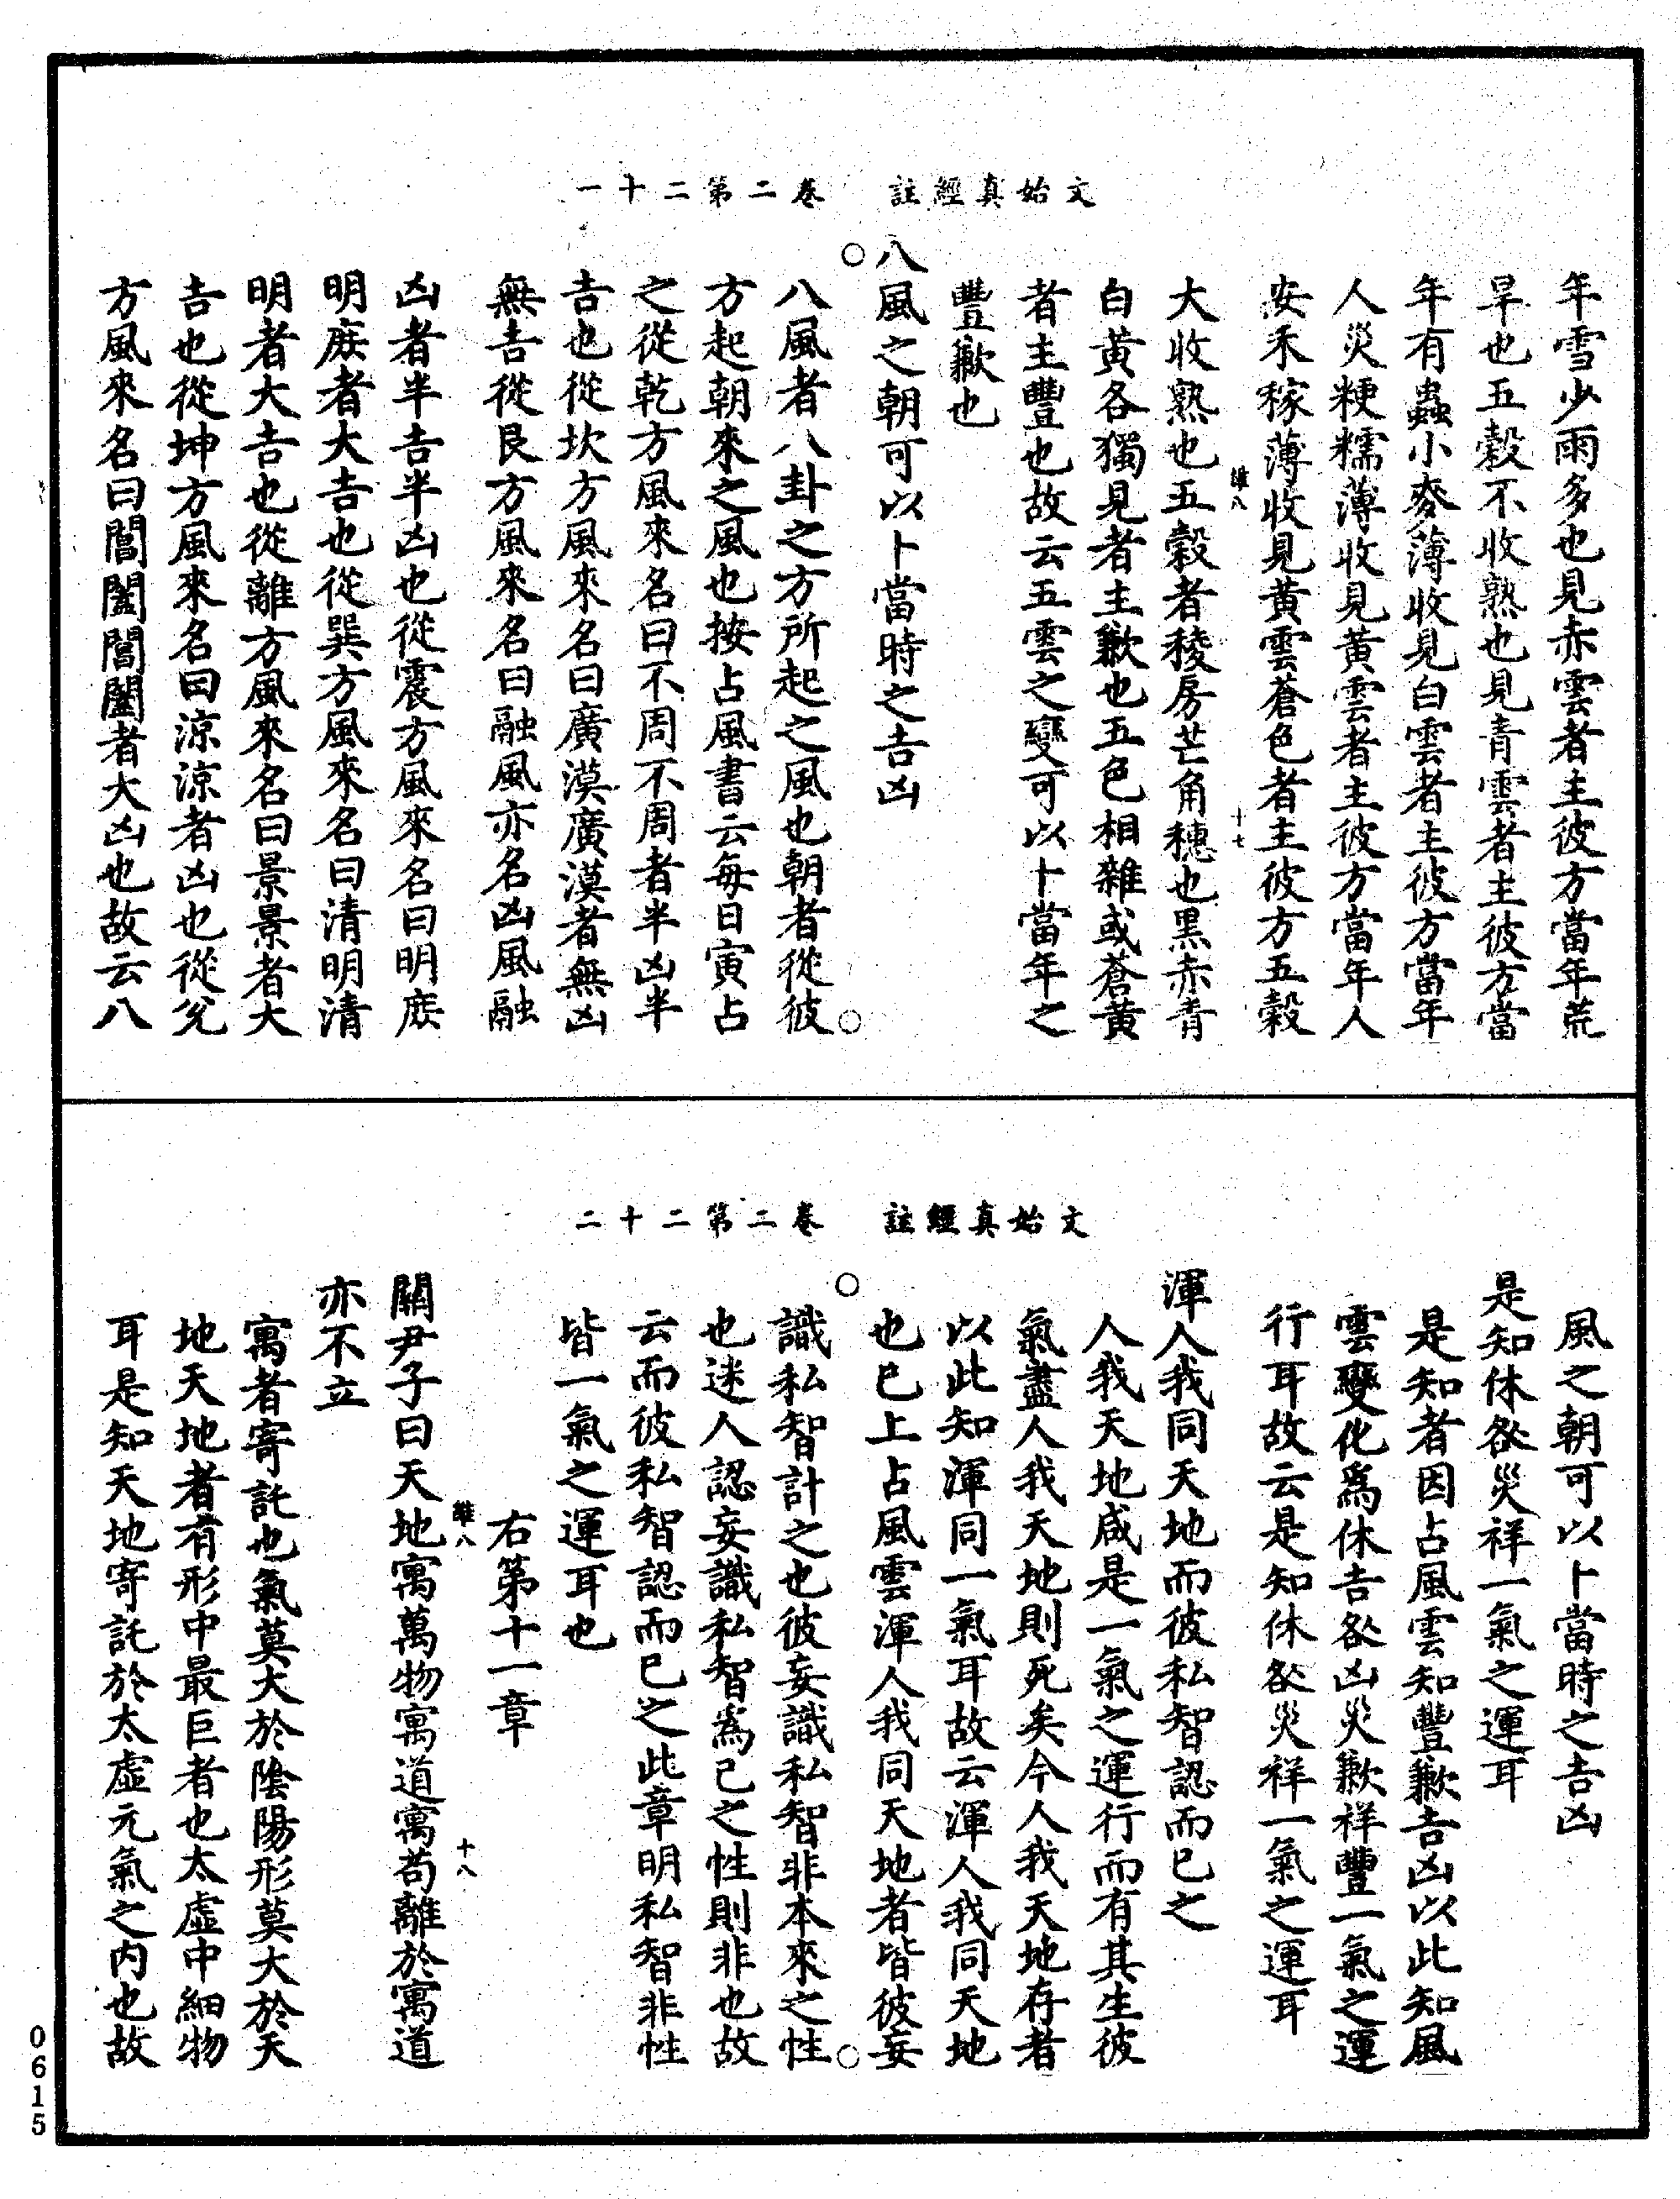 文始真經註　卷二第二十一
年雪少雨多也見赤雲者主彼方當年荒
旱也五穀不收熟也見青雲者主彼方當
年有蟲小麥薄收見白雲者主彼方當年
人災粳糯薄收見黃雲者主彼方當年人
安禾稼薄收見黃雲蒼色者主彼方五穀
雄八　十七
大收熟也五穀者稜房芒角穗也黑赤青
白黃各獨見者主歉也五色相雜或蒼黃
者主豐也故云五雲之變可以卜當年之
豐歉也
八風之朝可以卜當時之吉凶
八風者八卦之方所起之風也朝者從彼
方起朝來之風也按占風書云每日寅占
之從乾方風來名曰不周不周者半凶半
吉也從坎方風來名曰廣漠廣漠者無凶
無吉從艮方風來名曰融風亦名凶風融
凶者半吉半凶也從震方風來名曰明庶
明庶者大吉也從巽方風來名曰清明清
明者大吉也從離方風來名曰景景者大
吉也從坤方風來名曰涼涼者凶也從兌
方風來名曰閶闔閶闔者大凶也故云八
文始真經註　卷二第二十二
風之朝可以卜當時之吉凶
是知休咎災祥一氣之運耳
是知者因占風雲知豐歉吉凶以此知風
雲變化為休吉咎凶災歉祥豐一氣之運
行耳故云是知休咎災祥一氣之運耳
渾人我同天地而彼私智認而已之
人我天地咸是一氣之運行而有其生彼
氣盡人我天地則死矣今人我天地存者
以此知渾同一氣耳故云渾人我同天地
也已上占風雲渾人我同天地者皆彼妄
識私智計之也彼妄識私智非本來之性
也迷人認妄識私智為己之性則非也故
云而彼私智認而已之此章明私智非性
皆一氣之運耳也
右第十一章
雄八　十八
關尹子曰天地寓萬物寓道寓苟離於寓道
亦不立
寓者寄託也氣莫大於陰陽形莫大於天
地天地者有形中最巨者也太虛中細物
耳是知天地寄託於太虛元氣之內也故
0615